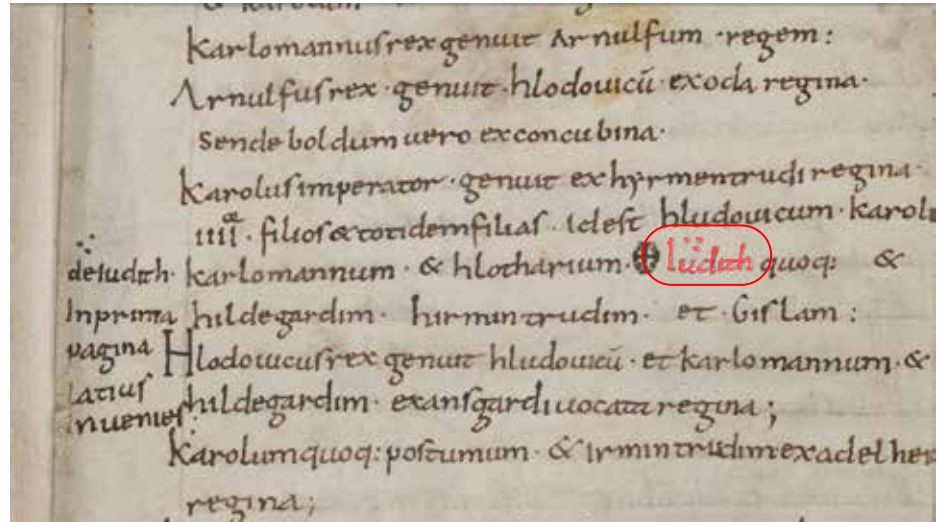 & karolum
karlomannus rex genuit Arnulfum · regem :
Arnulfus rex · genuit · hlodouicū · ex oda regina ·
Sendeboldum uero ex concubina ·
karolus imperator · genuit ex hyrmentrudi regina ·
IIII · filios & totidem filias · Id est hludouicum · karol
karlomannum · & hlotharium · Iudith quoq: &
hildegardim · hirmintrudim · et · Gislam :
Hlodouicus rex genuit hludouicū · et karlomannum · &
hildegardim · ex ansgardi uocata regina ;
karolum quoq: postumum · & irmintrudim ex adelhei
regina ;
de iudith ·
In prima
pagina
latius
inuenies :